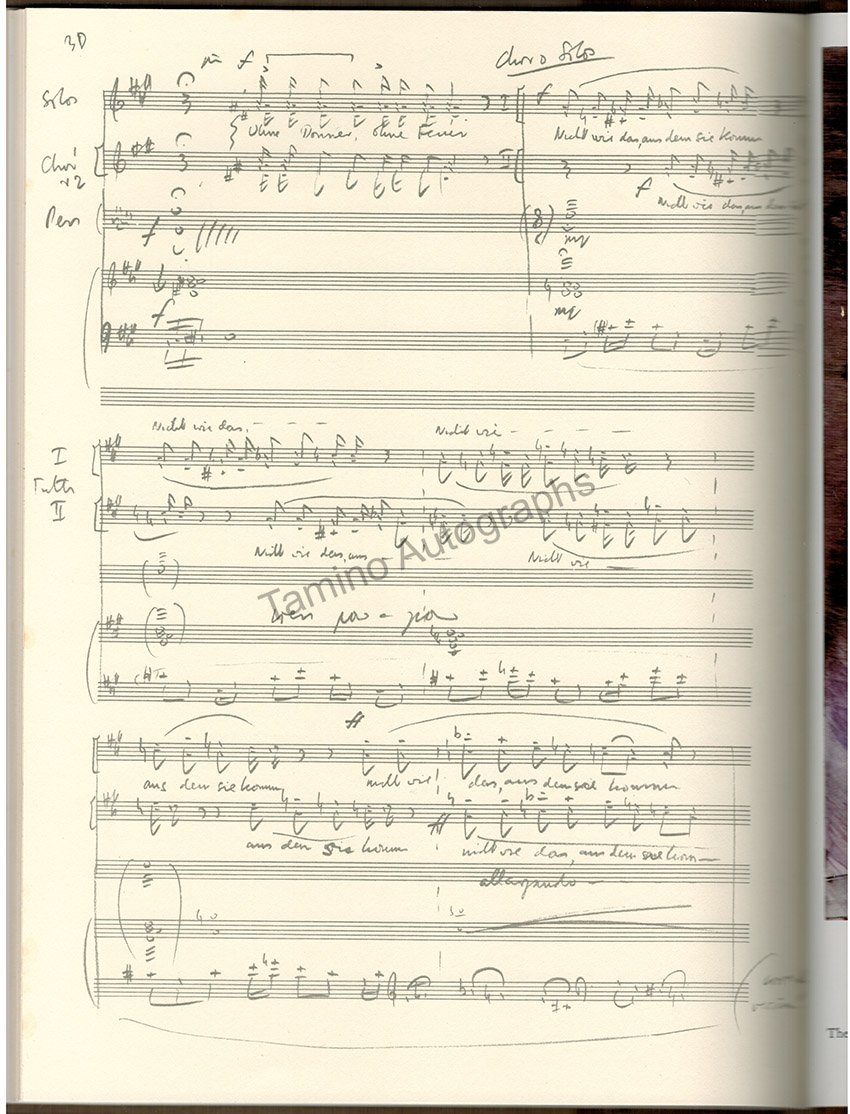 30
f
Coro Solo
Solos
f
Ohne Donner, ohne Feuer
Nicht wie das, aus dem sie kommen
Chor
1 2
f
Nicht wie das, aus
f
mp
f
mp
Nicht wie das,
Nicht wie
I
Tutti
II
Nicht wie das, aus
Nicht wie
Tamino Autographs
ff
aus dem sie komm
nicht wie
das, aus dem sie kommen
ff
aus dem sie komm
nicht wie das, aus dem sie kom
allargando
The